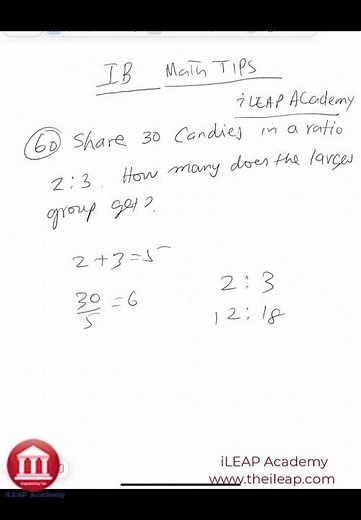 IB Math TIPS
iLEAP ACademy
60 Share 30 Candies in a ratio
2:3. How many does the larger
group get?
2+3=5
30/5 =6
2 : 3
12 : 18
iLEAP Academy
www.theileap.com
iLEAP Academy